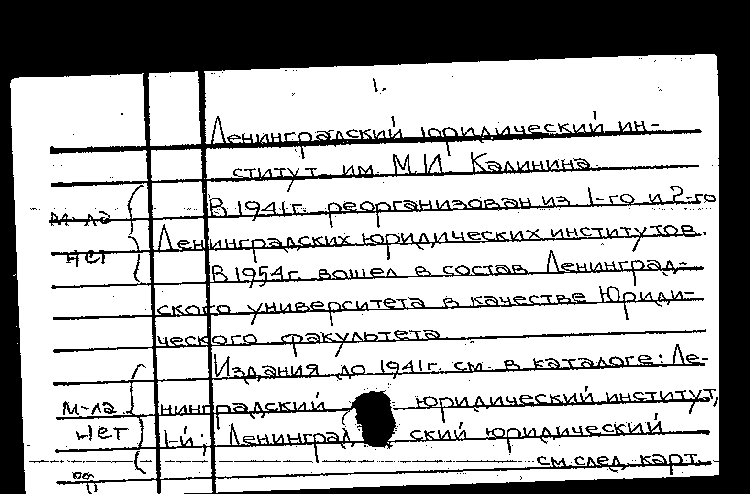 1.
Ленинградский юридический ин-
ститут им. М.И. Калинина.
В 1941г. реорганизован из 1-го и 2-го
м-ла
Ленинградских юридических институтов.
нет
В 1954г. вошел в состав Ленинград-
ского университета в качестве Юриди-
ческого факультета.
Издания до 1941г. см. в каталоге: Ле-
м-ла
нинградский юридический институт,
нет
1-й; Ленинградский юридический
см. след. карт.